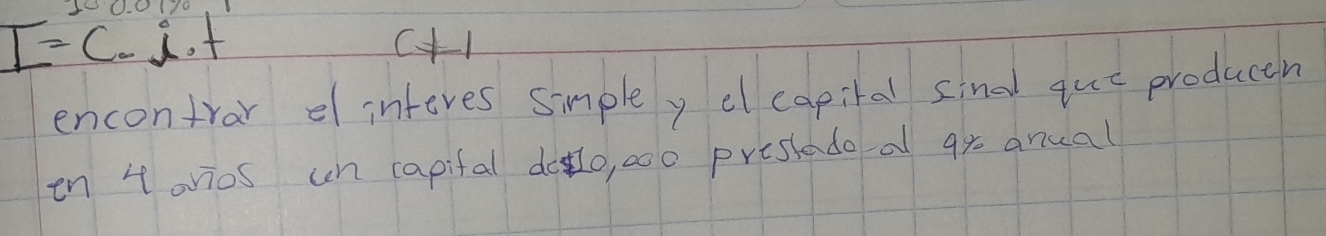 I = C. i. t C+I
encontrar el interes simple y el capital final que producen
en 4 años un capital de $10,000 prestado al 9% anual